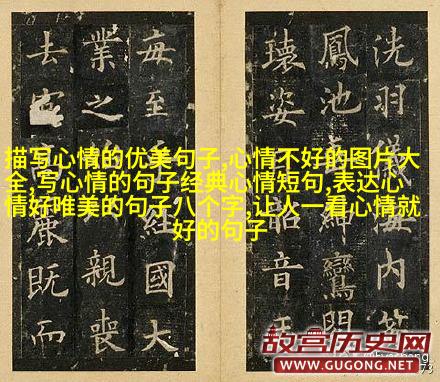 洗羽儀海內
鳳池鸞
姿韶音
至經國大
業之親喪
去麗既而
描写心情的优美句子,心情不好的图片大
全,写心情的句子经典心情短句,表达心
情好唯美的句子八个字,让人一看心情就
好的句子
故宫历史网
WWW.GUGONG.NET